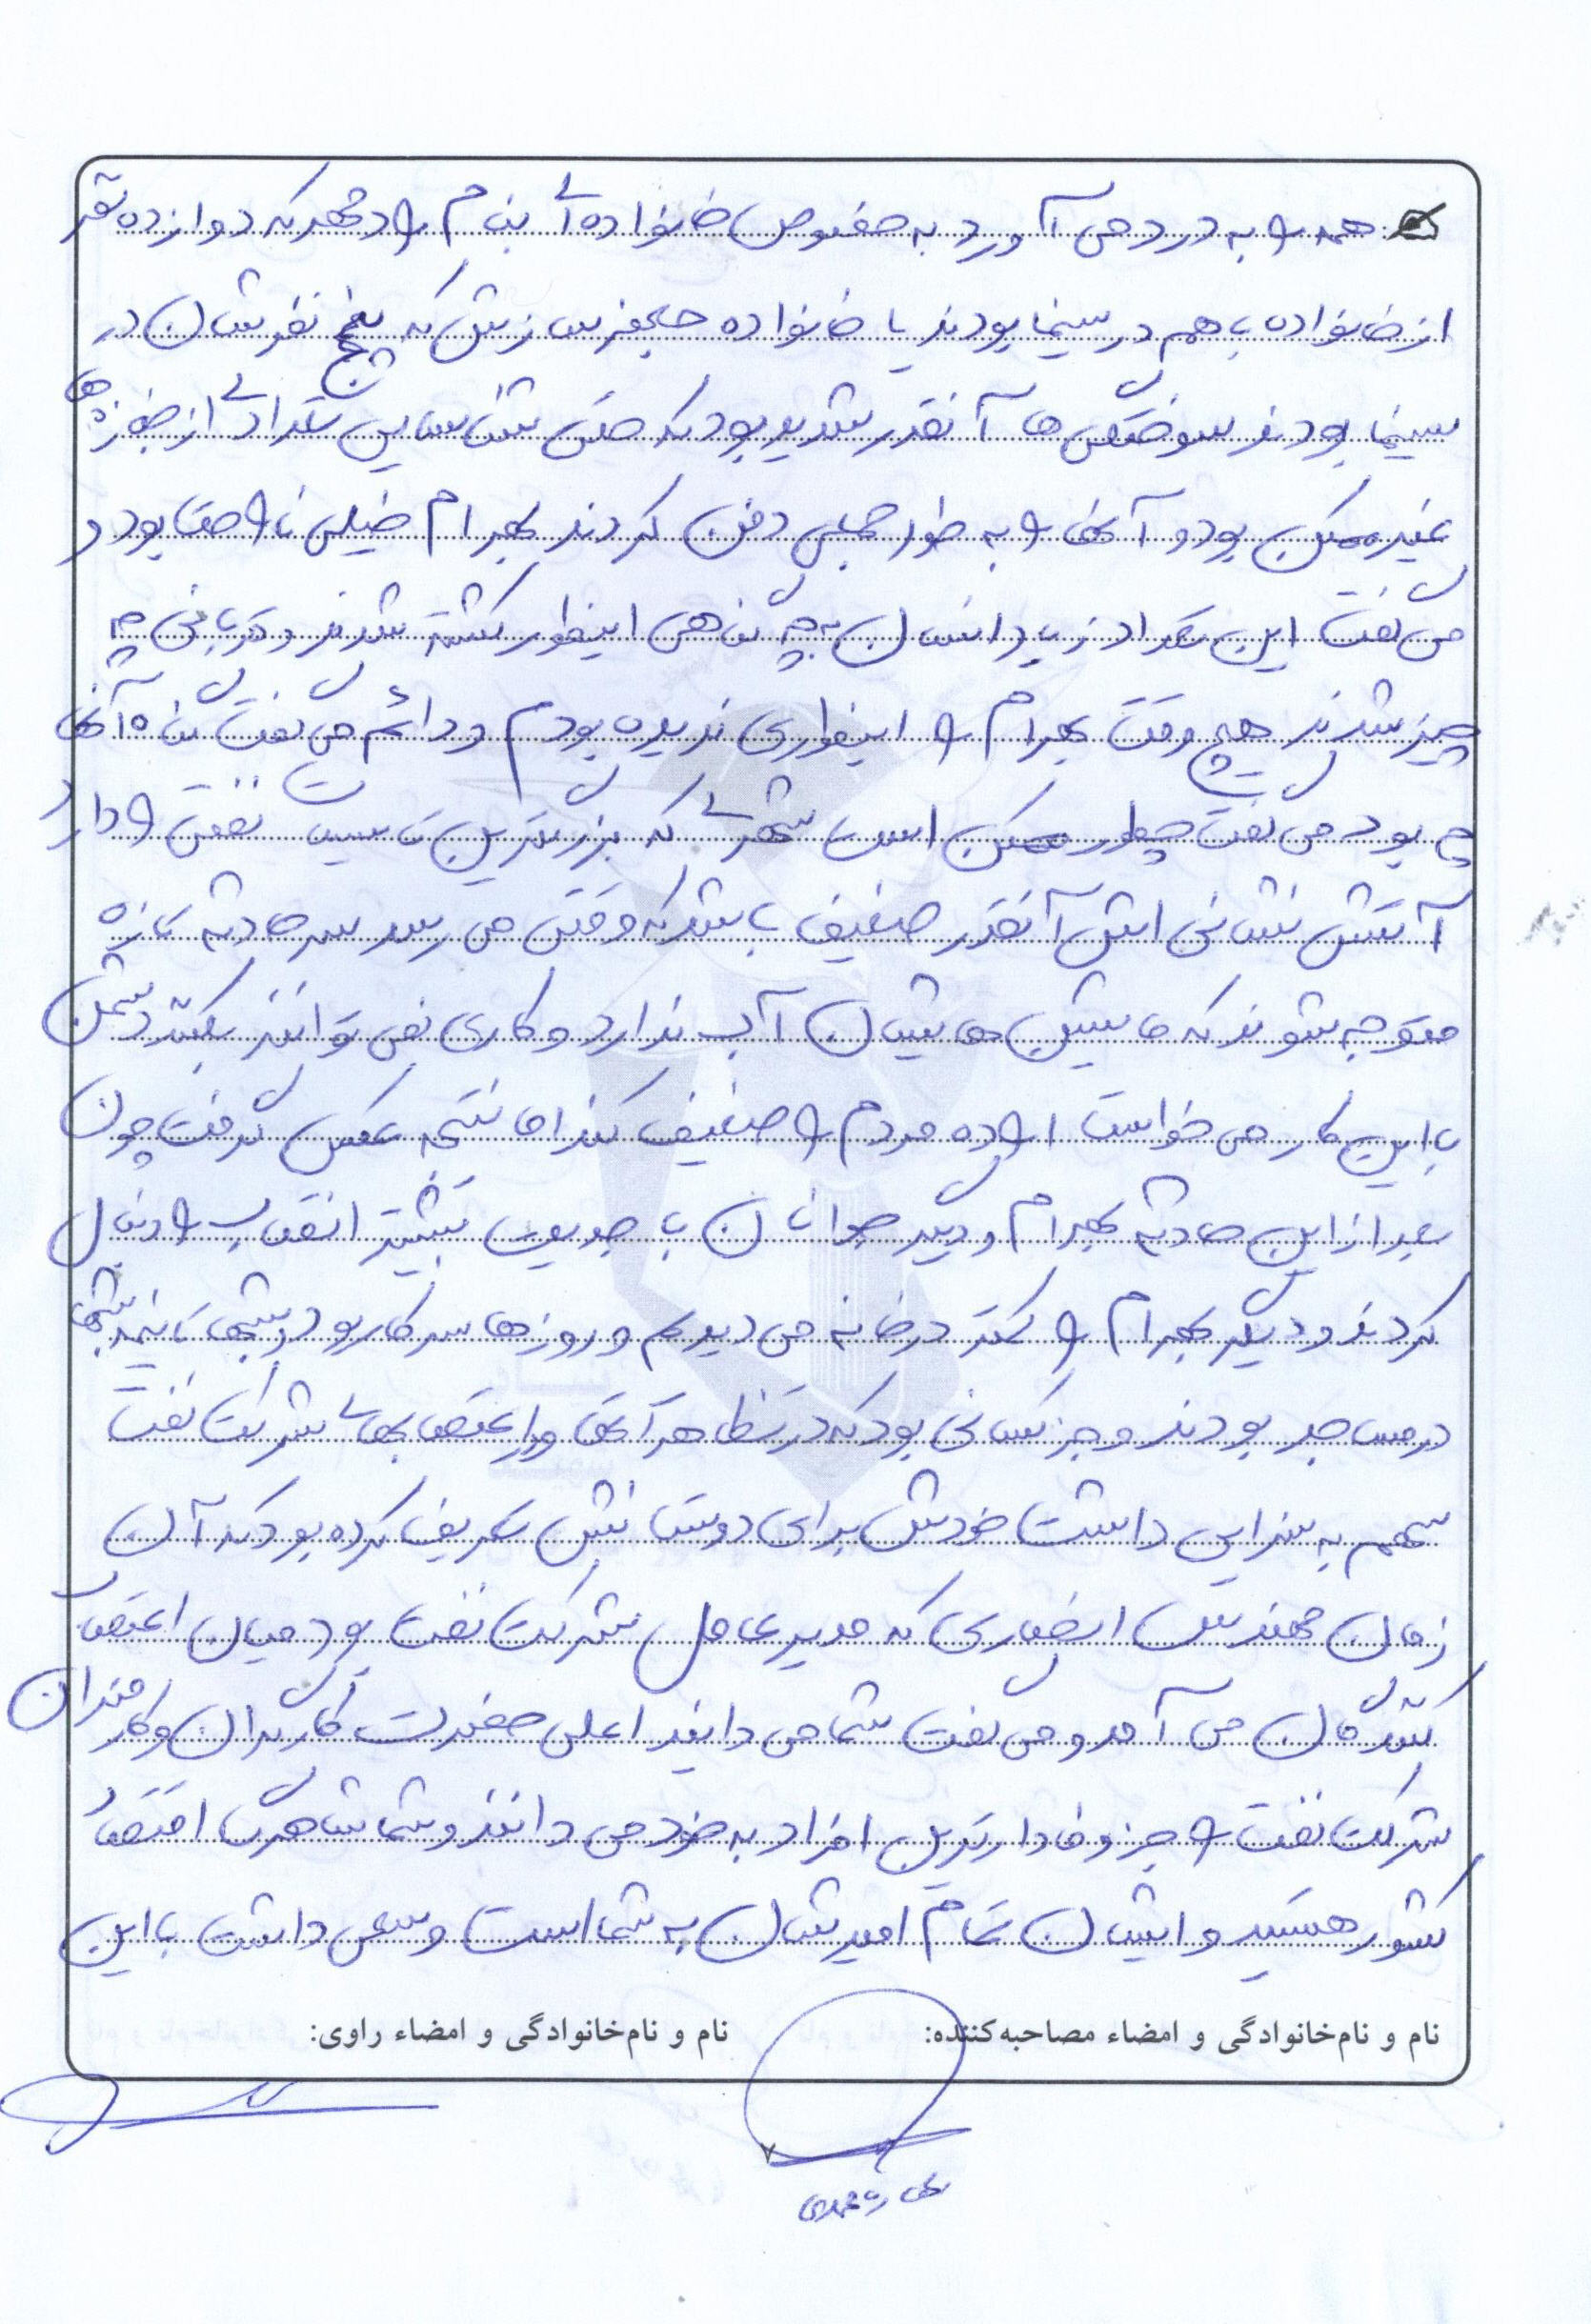 همه را به درد می آورد به خصوص خانواده ای بنام رادمهر که دوازده نفر
از خانواده باهم در سینما بودند یا خانواده که پنج نفرشان در
سینما بودند سوختگی ها آنقدر شدید بود که حتی شناسایی تعدادی از جنازه ها
غیر ممکن بود و آنها را به طور جمعی دفن کردند بهرام خیلی ناراحت بود و
می گفت این تعداد زیاد انسان به چه گناهی اینطور کشته شدند و قربانی چه
چیز شدند هیچ وقت بهرام را اینطوری ندیده بودم و دائم می گفت گناه آنها
چه بود می گفت چطور ممکن است شهری که بزرگترین تاسیسات نفتی را دارد
آتش نشانی اش آنقدر ضعیف باشد که وقتی می رسد سر حادثه تازه
متوجه شوند که ماشین هایشان آب ندارد و کاری نمی توانند بکنند دشمن
با این کار می خواست اراده مردم را ضعیف کند اما نتیجه عکس گرفت چون
بعد از این حادثه بهرام و دیگر جوانان با جدیت بیشتر انقلاب را دنبال
کردند و دیگر بهرام را کمتر در خانه می دیدیم و روزها سر کار بود و شبها تا نیمه شبها
در مساجد بودند و جز کسانی بود که در تظاهراتها و اعتصابهای شرکت نفت
سهم به سزایی داشت خودش برای دوستانش تعریف کرده بود که آن
زمان مهندس انصاری که مدیر عامل شرکت نفت بود میان اعتصاب
کنندگان می آمد و می گفت شما می دانید اعلی حضرت کارگران و کارمندان
شرکت نفت را جز وفادارترین افراد به خود می دانند و شما شاهرگ اقتصاد
کشور هستید و ایشان تمام امیدشان به شما است و سعی داشت با این
نام و نام‌خانوادگی و امضاء مصاحبه‌کننده: نام و نام‌خانوادگی و امضاء راوی:
۷